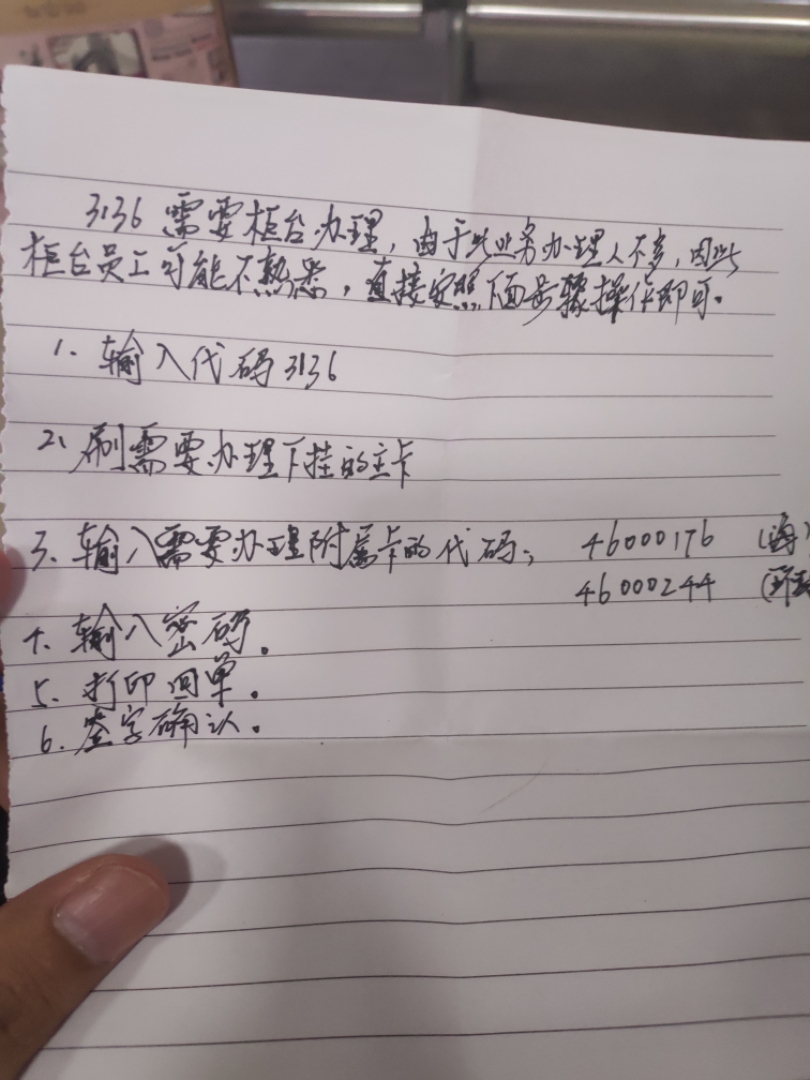 3136 需要柜台办理，由于此业务办理人不多，因此
柜台员工可能不熟悉，直接安照下面步骤操作即可。
1. 输入代码3136
2、刷需要办理下挂的主卡
3. 输入需要办理附属卡的代码； 46000176 (海)
46000244 (环球
4. 输入密码。
5. 打印回单。
6. 签字确认。